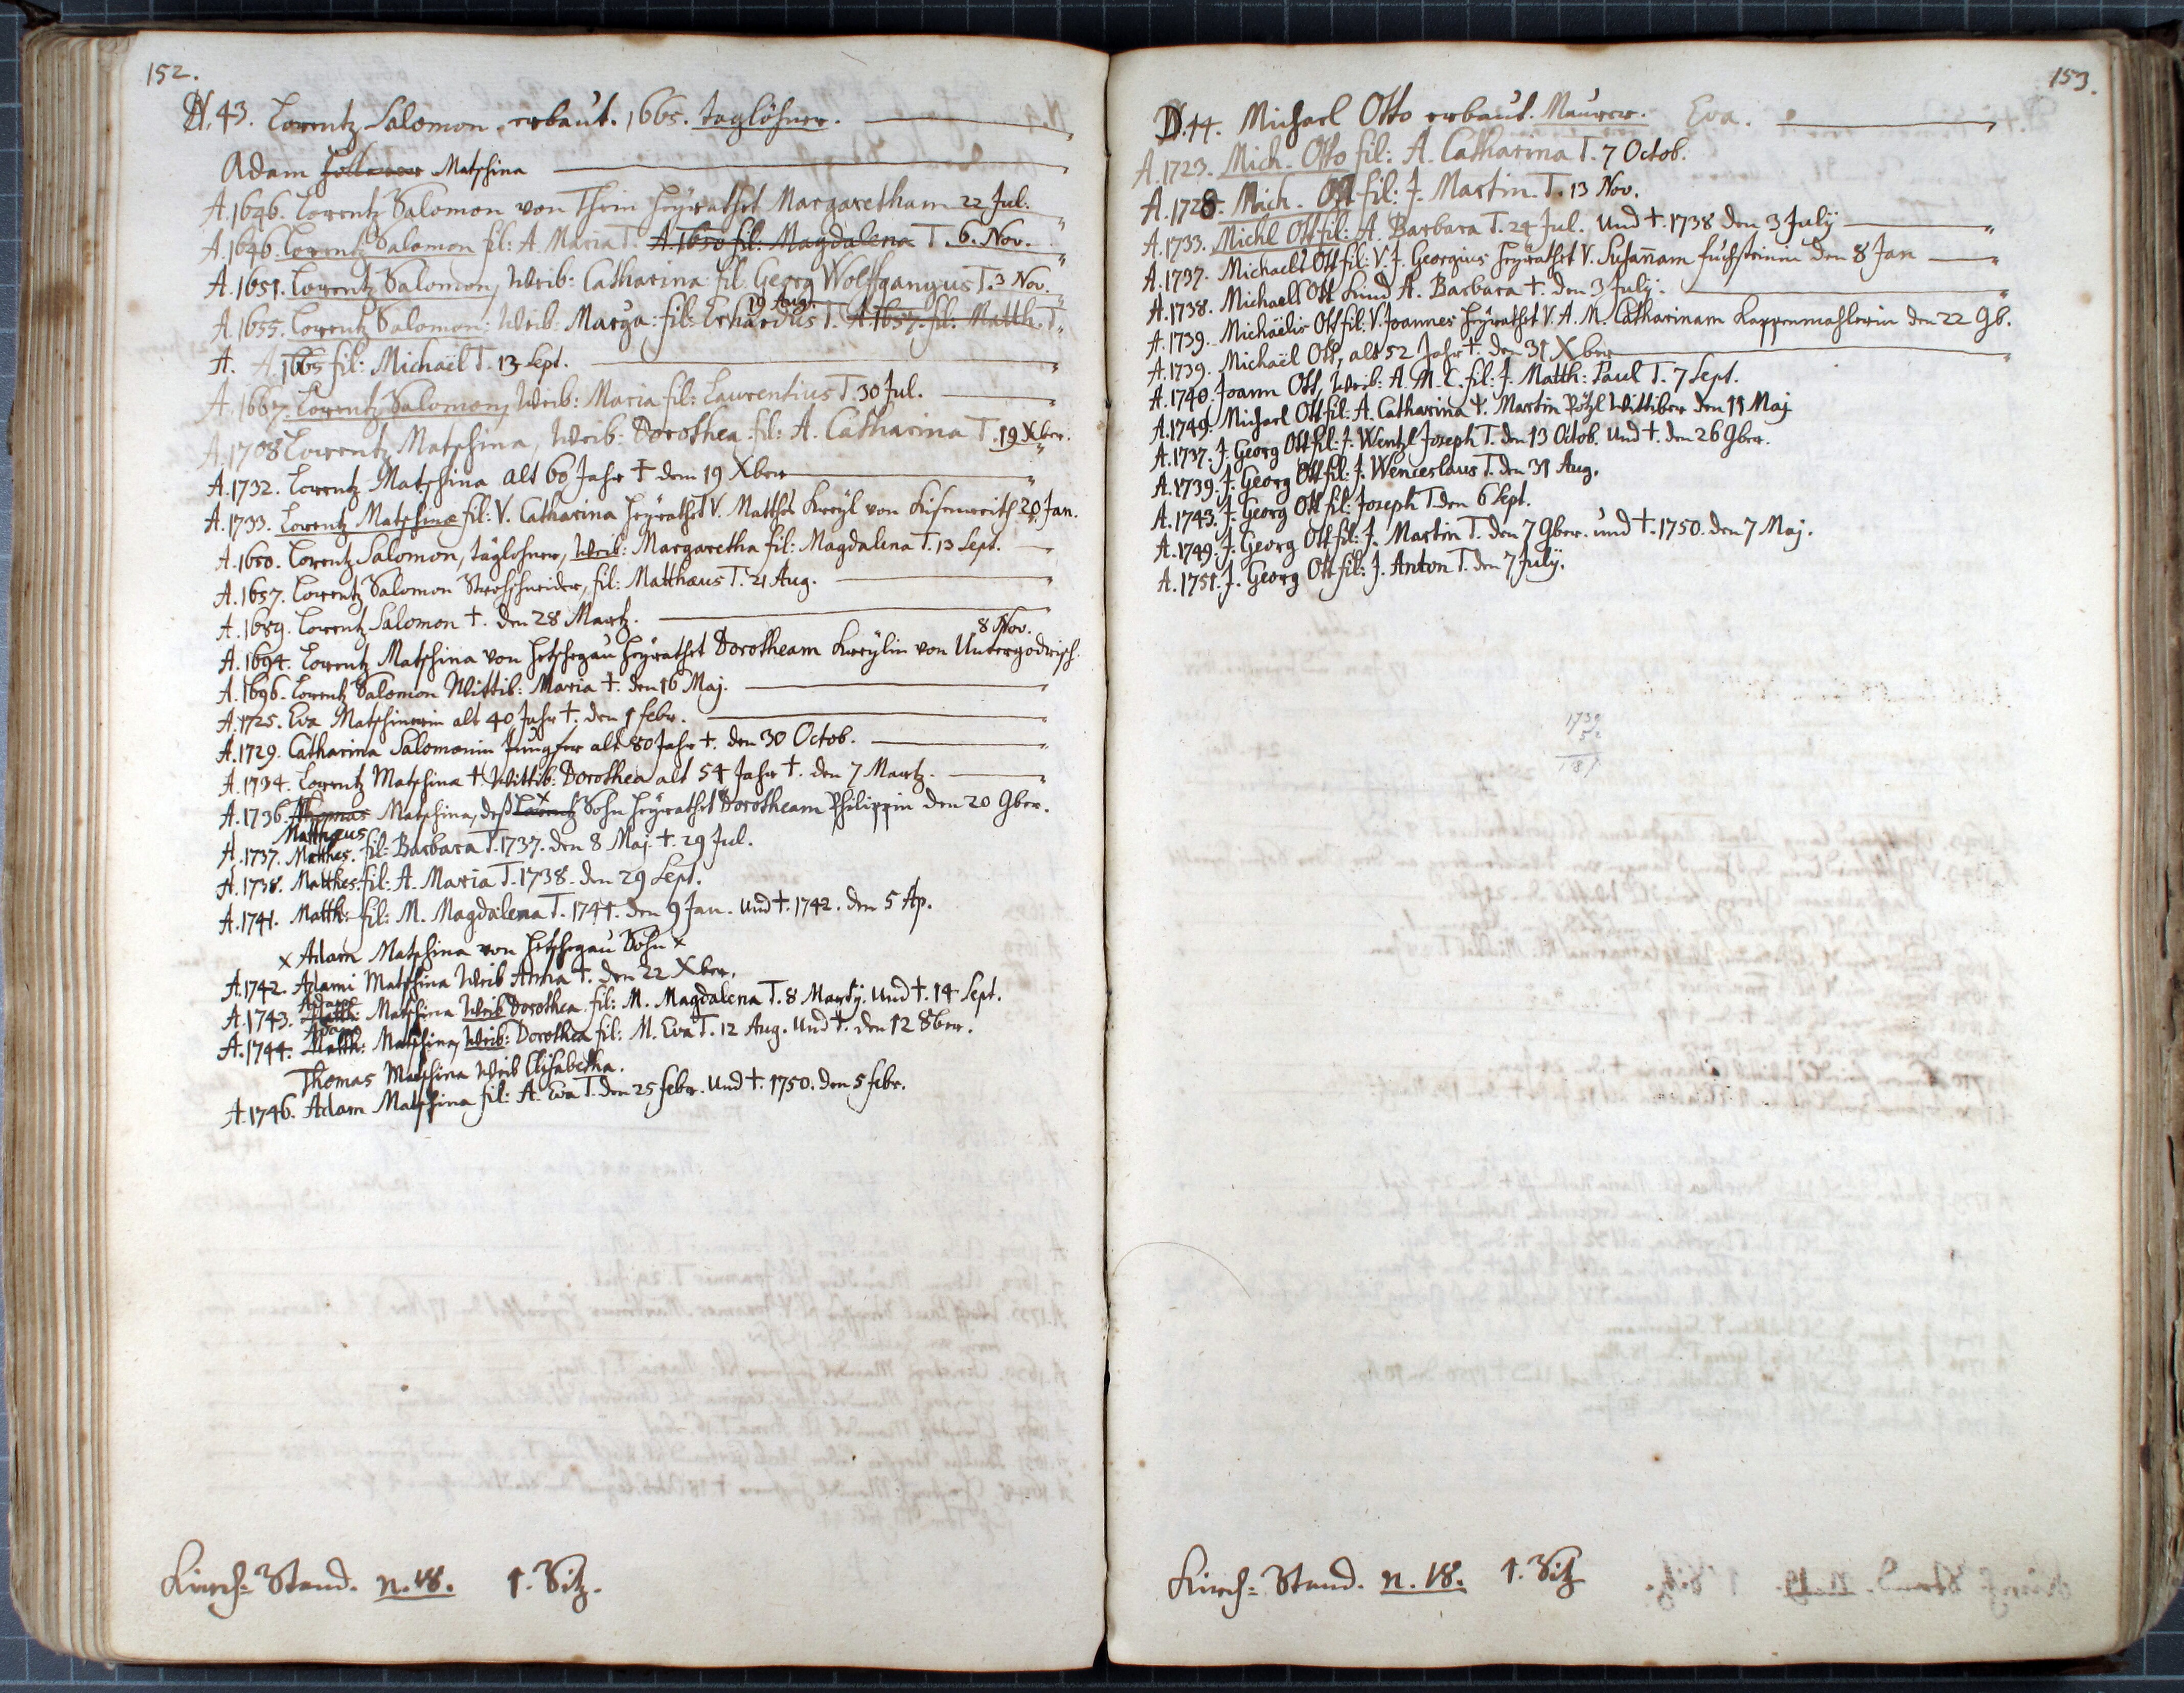 152.
N. 43. Lorentz Salomon, erbaut. 1665. taglöhner.
Adam Matschina
A. 1646. Lorentz Salomon von Thein heÿrathet Margaretham 22 Jul.
A. 1646. Lorentz Salomon fil: A. Maria T. A. 1650 fil: Magdalena T. 6. Nov.
A. 1651. Lorentz Salomon, Weib: Catharina fil: Georg Wolffgangus T. 3 Nov.
19 Aug.
A. 1655. Lorentz Salomon: Weib: Marÿa: fil: Erhardus T. A. 1657. fil: Matth. T.
A. A. 1665 fil: Michaël T. 13 Sept.
A. 1667. Lorentz Salomon, Weib: Maria fil: Laurentius T. 30 Jul.
A. 1708 Lorentz Matschina, Weib: Dorothea fil: A. Catharina T. 19 Xber.
A. 1732. Lorentz Matschina alt 60 Jahr † dem 19 Xber
A. 1733. Lorentz Matschinæ fil: V. Catharina heÿrathet V. Matthes Kreÿl von 20 Jan.
A. 1650. Lorentz Salomon, taglohner, Weib: Margaretha fil: Magdalena T. 13 Sept.
A. 1657. Lorentz Salomon Strohschneider, fil: Matthæus T. 21 Aug.
A. 1689. Lorentz Salomon †. den 28 Martz.
8 Nov.
A. 1694. Lorentz Matschina von Hetschegau heÿrathet Dorotheam Kreÿlin von Untergodrisch.
A. 1696. Lorentz Salomon Wittib: Maria †. den 16 Maj.
A. 1725. Eva Matschinerin alt 40 Jahr †. den 1 febr.
A. 1729. Catharina Salomonin Jungfer alt 80 Jahr †. den 30 Octob.
A. 1734. Lorentz Matschina † Wittib: Dorothea alt 54 Jahr †. den 7 Martz.
A. 1736. Thomas Matschina, deß Lorentz Sohn heÿrathet Dorotheam Philippin den 20 9ber.
Matthæus
A. 1737. Matthes. fil: Barbara T. 1737. den 8 Maj. †. 29 Jul.
A. 1738. Matthes. fil: A. Maria T. 1738. den 29 Sept.
A. 1741. Matth: fil: M. Magdalena T. 1741. den 9 Jan. und †. 1742. den 5 Ap.
x Adam Matschina von Hetschegau Sohn x
A. 1742. Adami Matschina Weib Anna †. den 22 Xber.
Adami
A. 1743. Matth: Matschina Weib Dorothea fil: M. Magdalena T. 8 Martÿ. und †. 14 Sept.
Adam
A. 1744. Matth: Matschina, Weib: Dorothea fil: M. Eva T. 12 Aug. und †. den 12 8ber.
Thomas Matschina Weib Elisabetha.
A. 1746. Adam Matschina fil: A. Eva T. den 25 febr. und †. 1750. den 5 febr.
Kirch= Stand. n. 18. 1. Sitz.
153.
N. 44. Michael Otto erbaut. Maurer. Eva.
A. 1723. Mich. Otto fil: A. Catharina T. 7 Octob.
A. 1728. Mich. Ott fil: J. Martin. T. 13 Nov.
A. 1733. Michl Ott fil: A. Barbara T. 24 Jul. und †. 1738 den 3 Julÿ
A. 1737. Michaels Ott fil: V. J. Georgius heÿrathet V. Susanam fuchsteinin den 8 Jan
A. 1738. Michaels Ott Kind A. Barbara †. den 3 Julÿ.
A. 1739. Michaëlis Ott fil: V. Joannes heÿrathet V. A. M. Catharinam Kappenmahlerin den 22 9b.
A. 1739. Michaël Ott, alt 52 Jahr †. den 31 Xber
A. 1740. Joann Ott, Weib: A. M. C. fil: J. Matth: Paul T. 7 Sept.
A. 1749. Michael Ott fil: A. Catharina †. Martin Wittiber den 19 Maj
A. 1737. J. Georg Ott fil: J. Wentzl Joseph T. den 13 Octob. und †. den 26 9ber.
A. 1739. J. Georg Ott fil: J. Wenceslaus T. den 31 Aug.
A. 1743. J. Georg Ott fil: Joseph T. den 6 Sept.
A. 1749. J. Georg Ott fil: J. Martin T. den 7 9ber. und †. 1750. den 7 Maj.
A. 1751. J. Georg Ott fil: J. Anton T. den 7 Julÿ.
1739
52
Kirch= Stand. n. 18. 1. Sitz